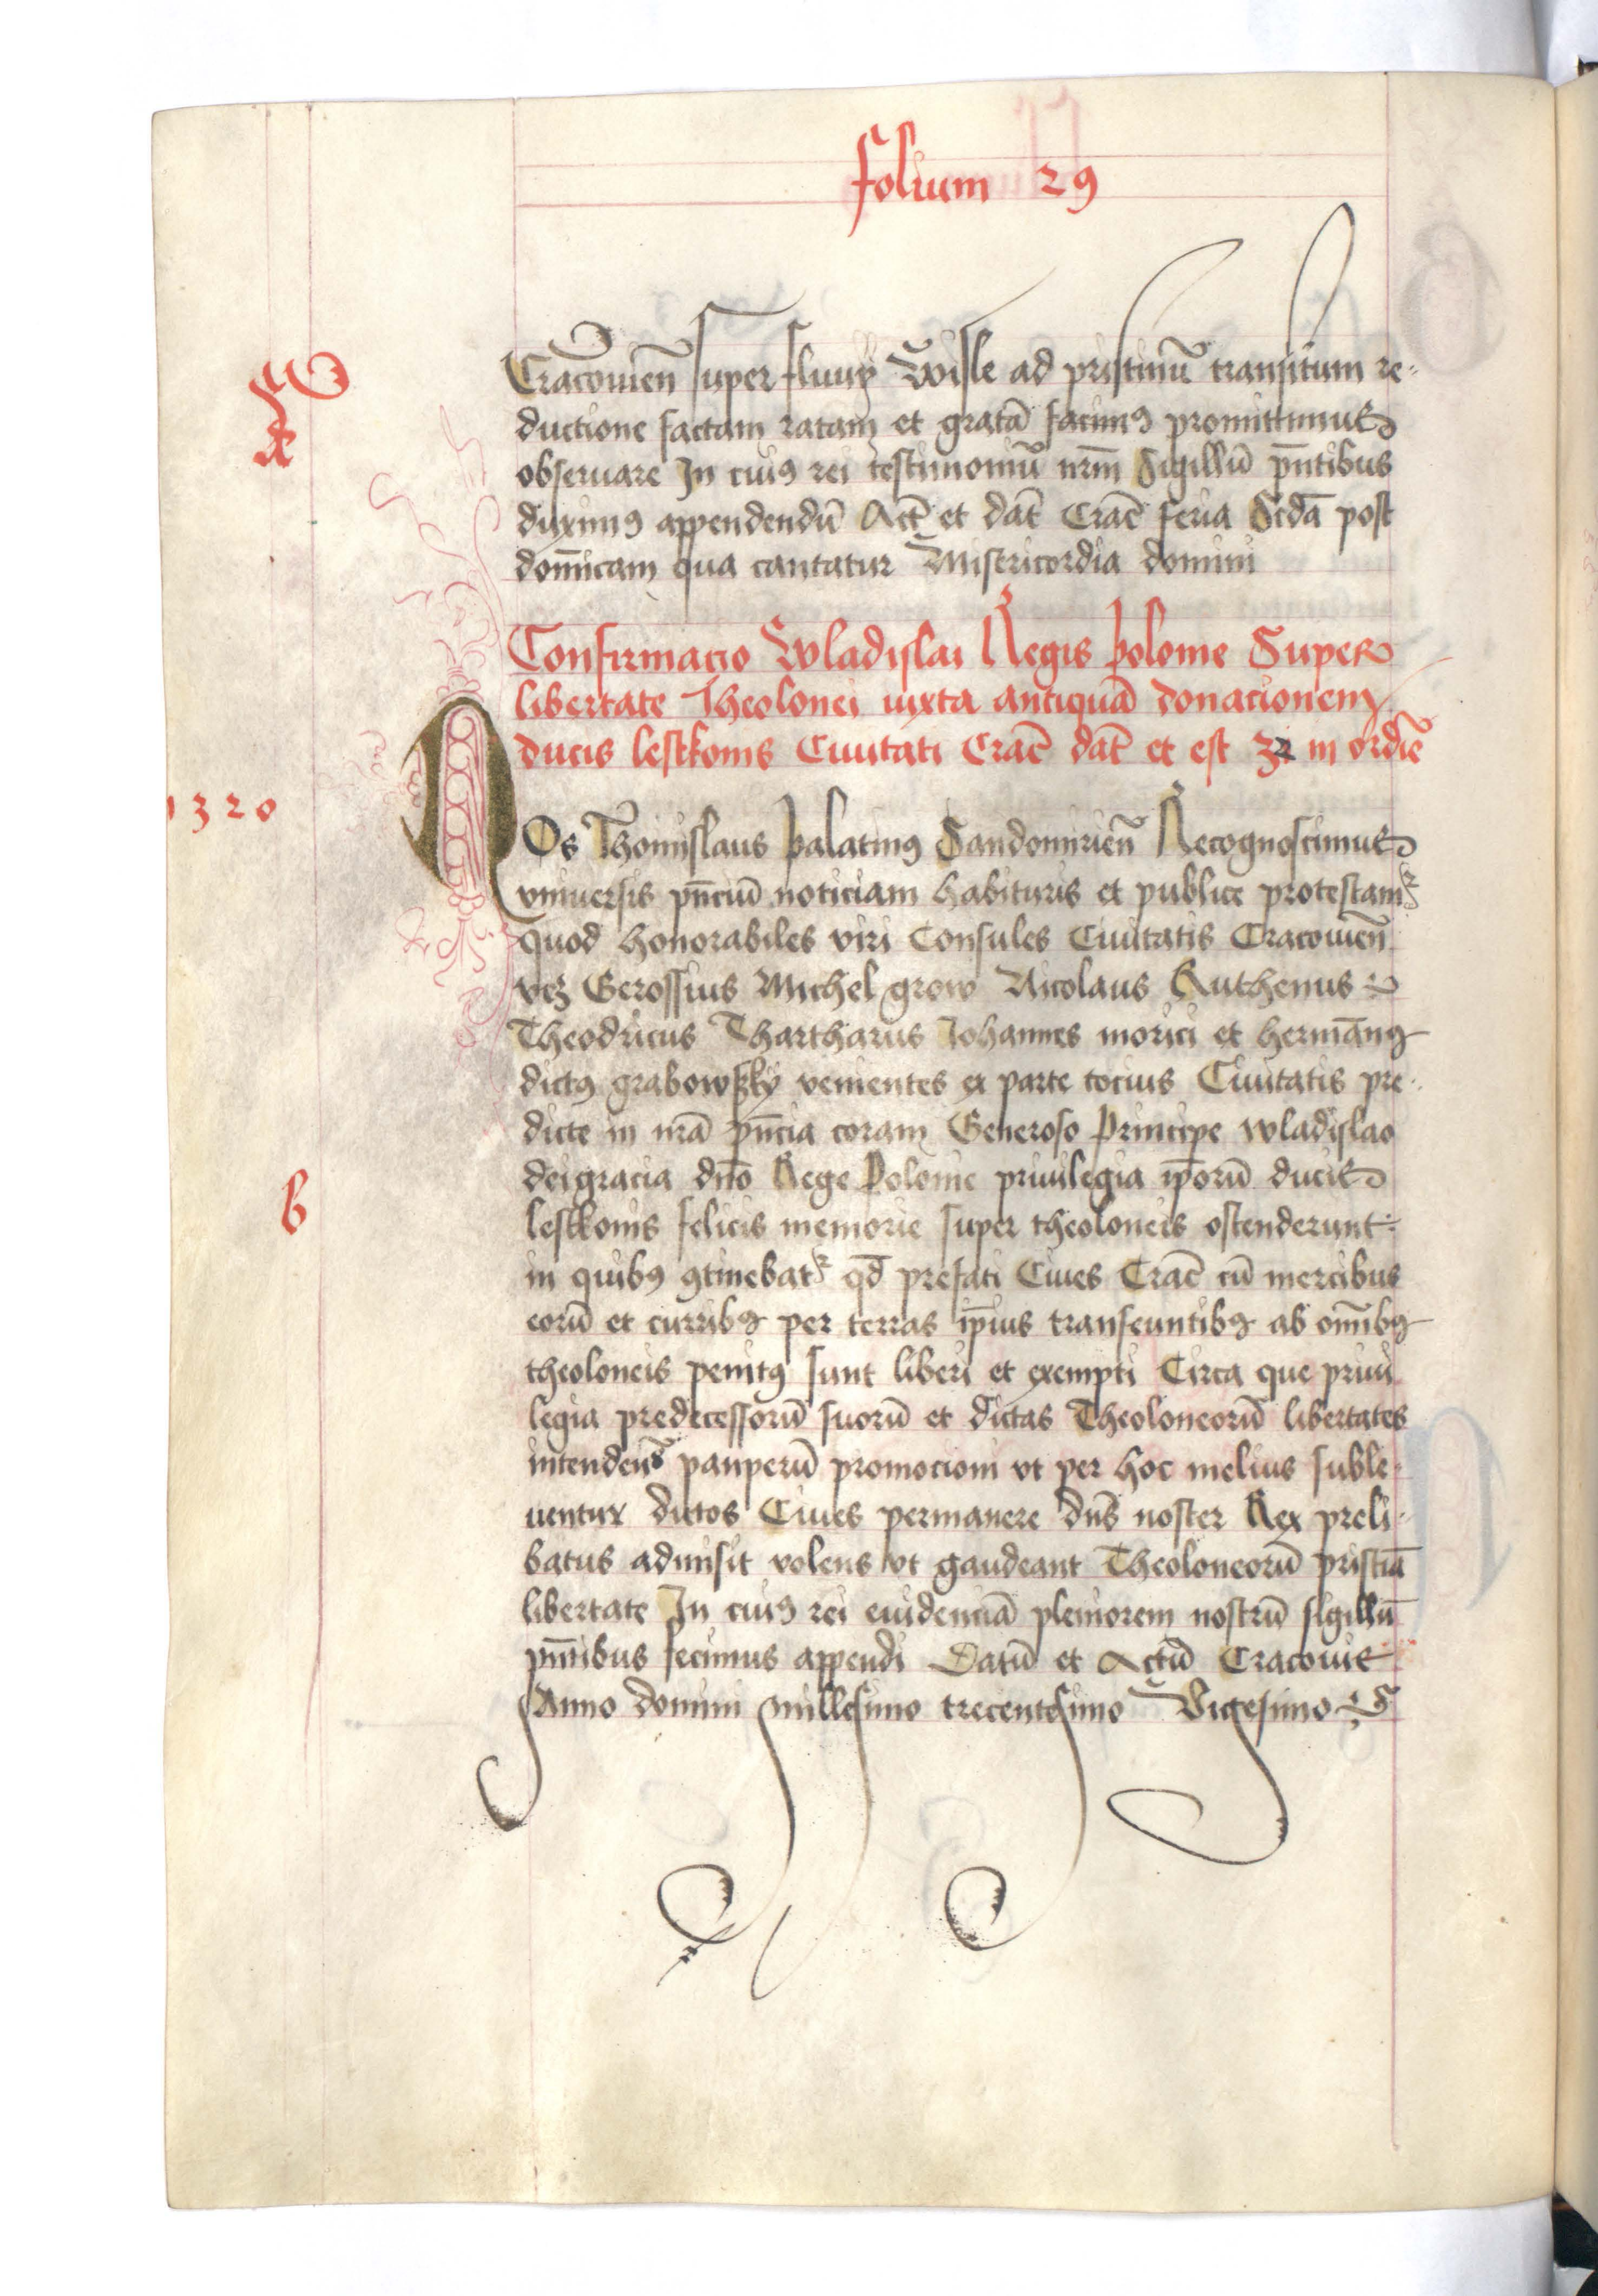 folium 29
Cracouien̄ super fluuÿ Wisle ad pristinū transitum re-
ductione factam ratam et gratā facimꝰ promittimus
obseruare In cuiꝰ rei testimoniū nr̄m Sigillū pn̄tibus
duximꝰ appendendū Act̄ et dat̄ Crac̄ feria Scdā post
domīcam qua cantatur Misericordia domini
Confirmacio Wladislai Regis polonie Super
libertate Theolonei iuxta antiquā donacionem
ducis lestkonis Ciuitati Crac̄ dat̄ et est 32 in ordīe
1320
NOs Thomislaus palatinꝰ Sandomirien̄ Recognoscimus
vniuersis pn̄ciū noticiam habituris et publice protestamᷣ
quod honorabiles viri Consules Ciuitatis Cracouien̄
vcꝫ Gerossius Michel grow Nicolaus Ruthenus
Theodricus Thartharus Johannes morici et hermānꝰ
dictꝰ grabowsky venientes ex parte tocius Ciuitatis pre-
dicte in nr̄ā pn̄cia coram Generoso Principe wladislao
dei gracia dn̄o Rege Polonie priuilegia ip̄orū ducis
lestkonis felicis memorie super theoloneis ostenderunt
in quibꝰ ꝯtinebatᷣ qd̄ prefati Ciues Crac̄ cū mercibus
eorū et curribꝰ per terras ip̄ius transeuntibꝰ ab om̄ibꝰ
theoloneis penitꝰ sunt liberi et exempti Circa que priui
legia predecessorū suorū et dictas Theoloneorū libertates
intendens pauperū promocioni vt per hoc melius suble-
uentur dictos Ciues permanere dn̄s noster Rex preli-
batus admisit volens vt gaudeant Theoloneorū pristīa
libertate In cuiꝰ rei euidenciā pleniorem nostrū sigillū
pn̄tibus fecimus appendi Datū et Actū Cracouie
Anno domini millesimo trecentesimo Vigesimo
b